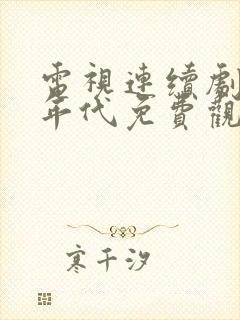 電視連續劇
年代免費觀
寒千汐